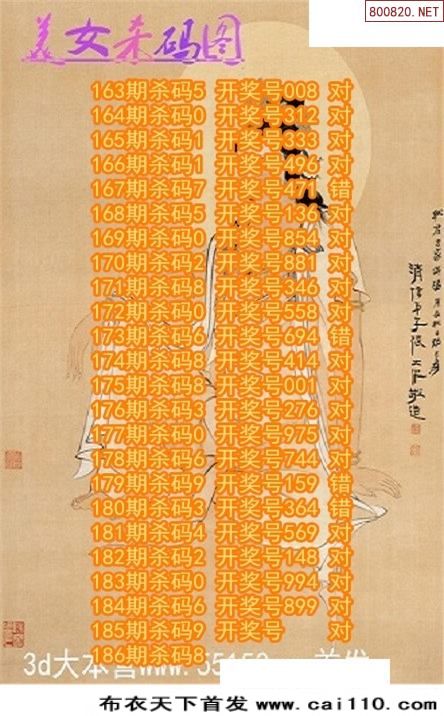 800820.NET
美女杀码图
163期杀码5 开奖号008 对
164期杀码0 开奖号312 对
165期杀码1 开奖号333 对
166期杀码1 开奖号496 对
167期杀码7 开奖号471 错
168期杀码5 开奖号136 对
169期杀码0 开奖号854 对
170期杀码2 开奖号881 对
171期杀码8 开奖号346 对
172期杀码0 开奖号558 对
173期杀码6 开奖号694 错
174期杀码8 开奖号414 对
175期杀码8 开奖号001 对
176期杀码3 开奖号276 对
177期杀码0 开奖号975 对
178期杀码6 开奖号744 对
179期杀码9 开奖号159 错
180期杀码3 开奖号364 错
181期杀码4 开奖号569 对
182期杀码2 开奖号148 对
183期杀码0 开奖号994 对
184期杀码6 开奖号899 对
185期杀码9 开奖号 对
186期杀码8
3d大本营www.
布衣天下首发 www.cai110.com